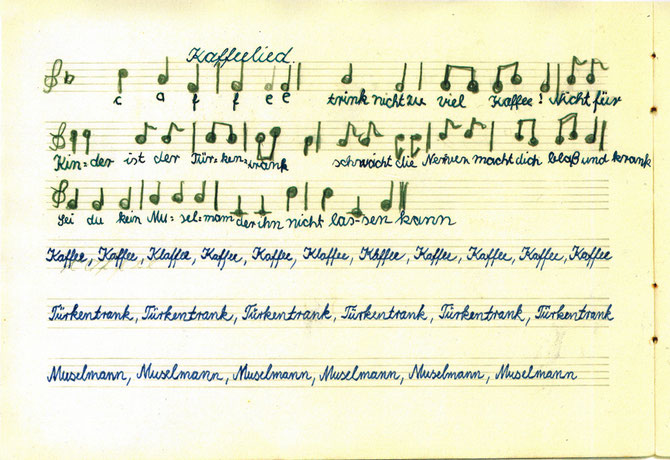 Kaffeelied
c a f f e e trink nicht zu viel Kaffee! Nicht für
Kin=der ist der Tür=ken=trank schwächt die Nerven macht dich blaß und krank
Sei du kein Mu=sel=mann der ihn nicht las=sen kann
Kaffee, Kaffee, Klaffee, Kaffee, Kaffee, Klaffee, Kaffee, Kaffee, Kaffee, Kaffee, Kaffee
Türkentrank, Türkentrank, Türkentrank, Türkentrank, Türkentrank, Türkentrank
Muselmann, Muselmann, Muselmann, Muselmann, Muselmann, Muselmann